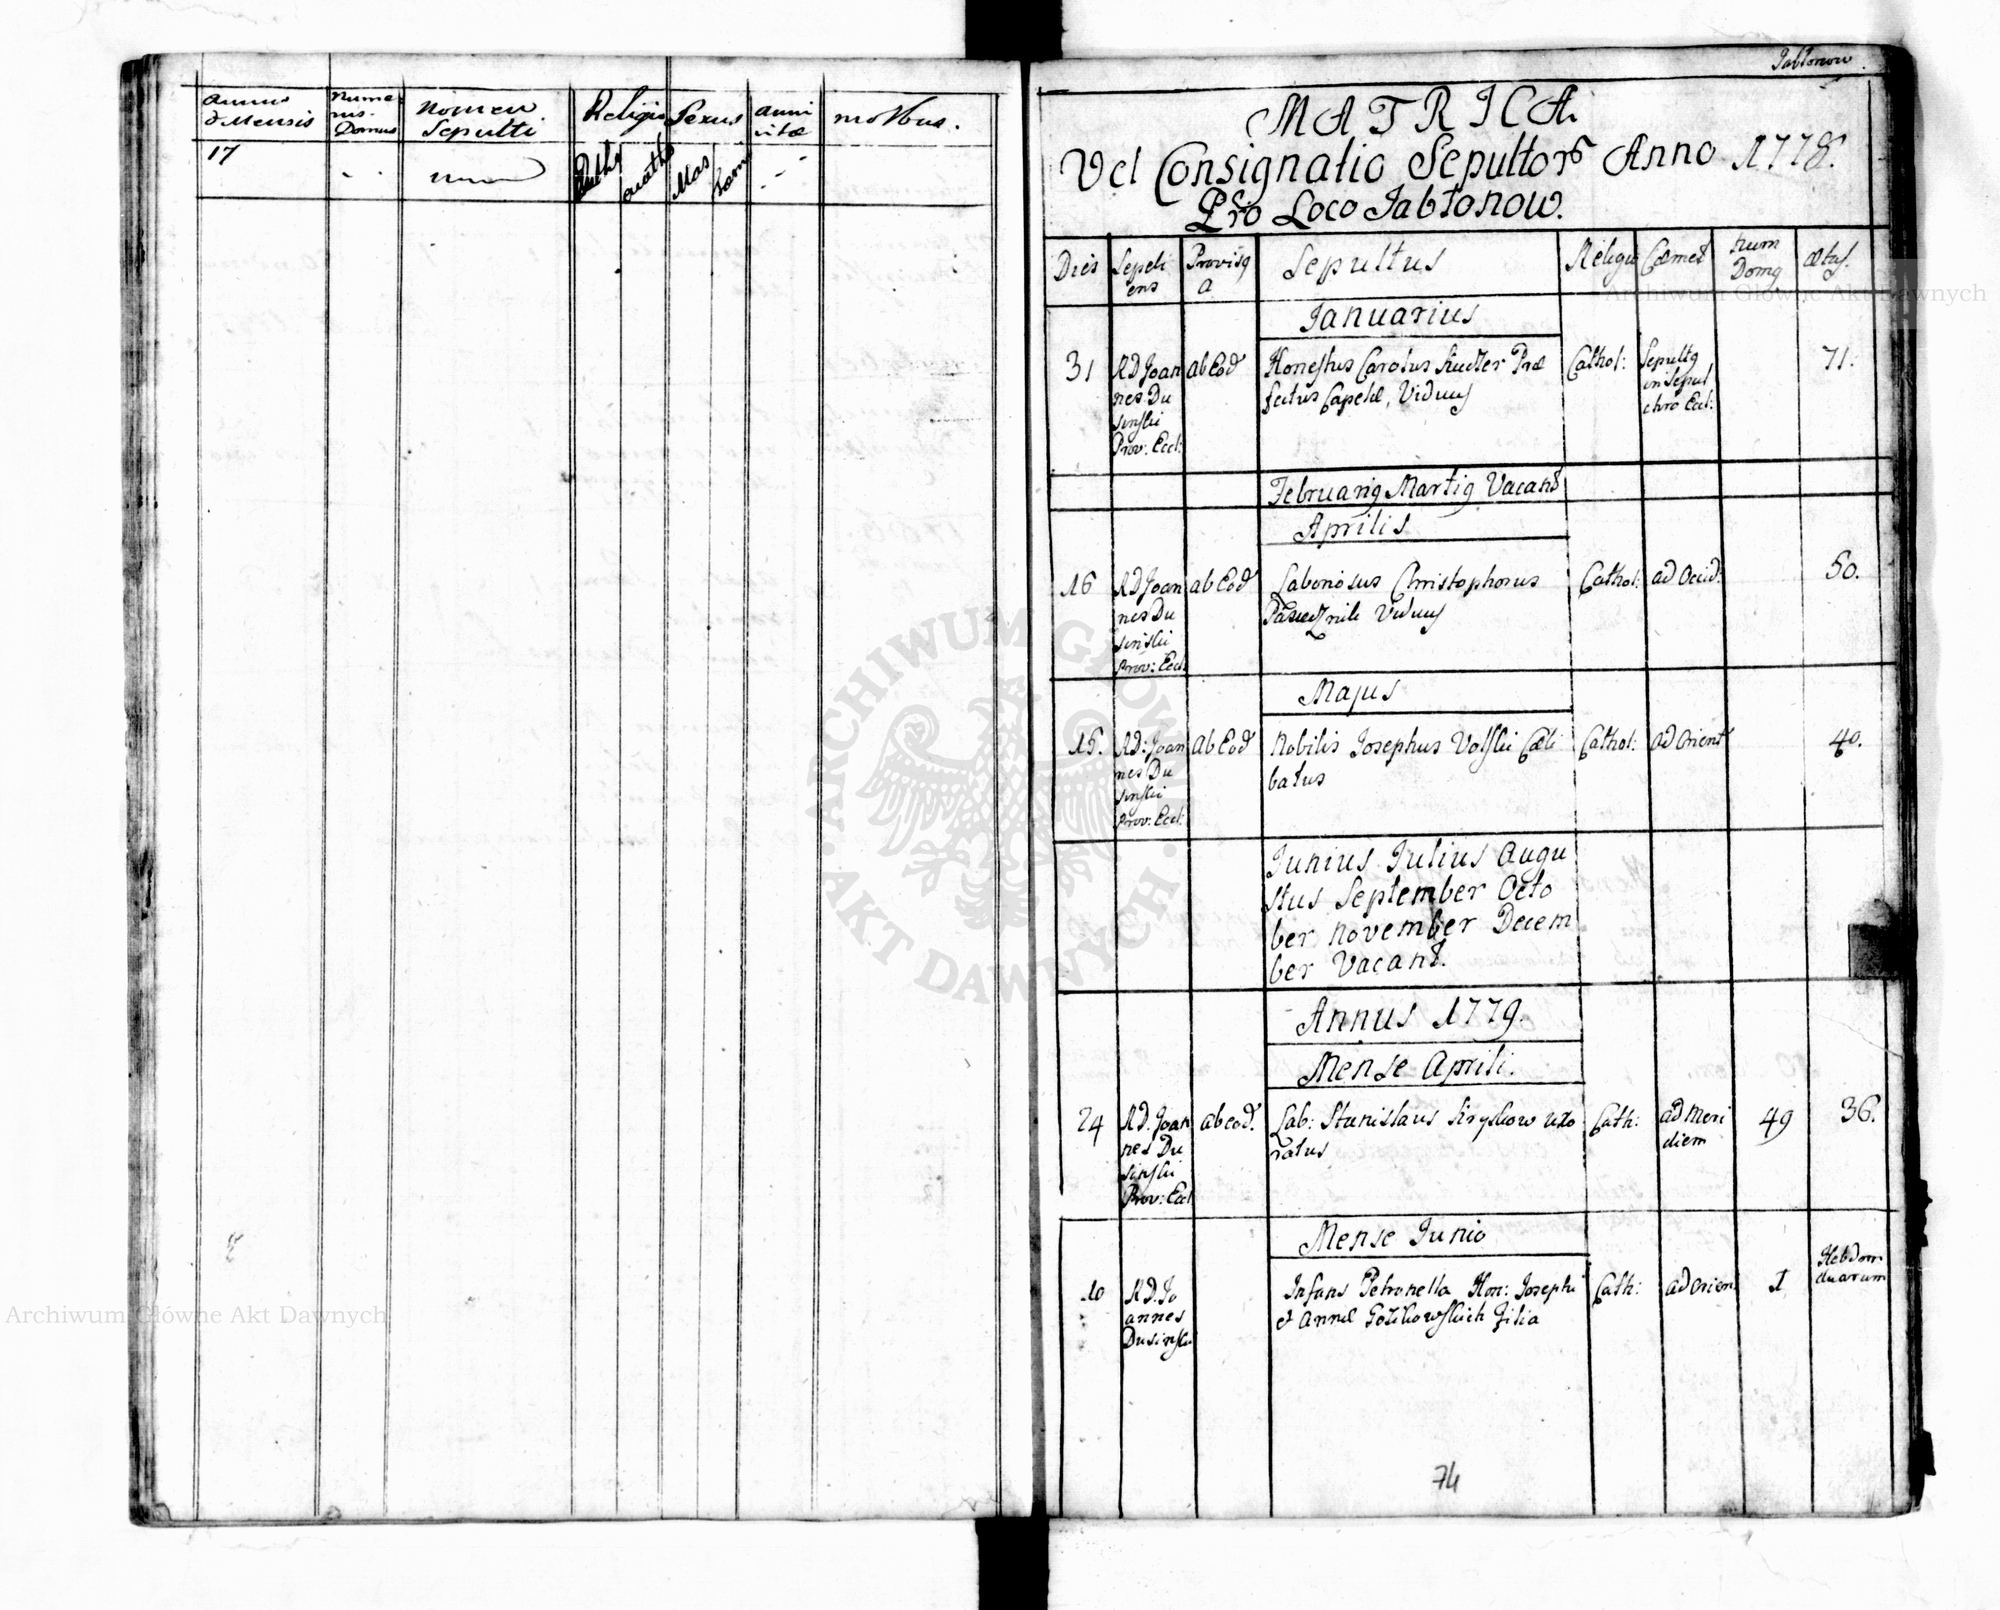 Annus
& Mensis
Nume
rus
Domus
Nomen
Sepulti
Religio
Sexus
Anni
vitæ
morbus.
17
Mas
Jabłonow
MATRICA
Vel Consignatio Sepultor Anno 1778.
Pro Loco Jabłonow.
Dies
Sepeli
ens
Provisq
a
Sepultus
Religio
Cæmet
Num
Domq
ætas.
Januarius
31
RD Joan
nes Du
sinski
Prov: Eccl:
ab Eod
Honestus Carolus Præ
fectus Capellæ, Viduus
Cathol:
Sepultq
in Sepul
chro Eccl:
71.
Februariq Martiq Vacant
Aprilis
16
RD Joan
nes Du
sinski
Prov: Eccl:
ab Eod
Laboriosus Christophorus
Viduus
Cathol:
ad Occid:
50.
Majus
15.
RD: Joan
nes Du
sinski
Prov: Eccl:
ab Eod
Nobilis Josephus Wolski Cæli
batus
Cathol:
ad Orient
40.
Junius Julius Augu
stus September Octo
ber November Decem
ber Vacant.
Annus 1779.
Mense Aprili.
24
RD. Joan
nes Du
sinski
Prov: Eccl
ab eod.
Lab: Stanislaus Kryskow uxo
ratus
Cath:
ad Meri
diem
49
36.
Mense Junio
10
RD. Jo
annes
Dusinski
Infans Petronella Hon: Josephi
et Annæ Filia
Cath:
ad Orien
1
Hebdom
duarum
74
ARCHIWUM GŁÓWNE AKT DAWNYCH
Archiwum Główne Akt Dawnych
Archiwum Główne Akt Dawnych